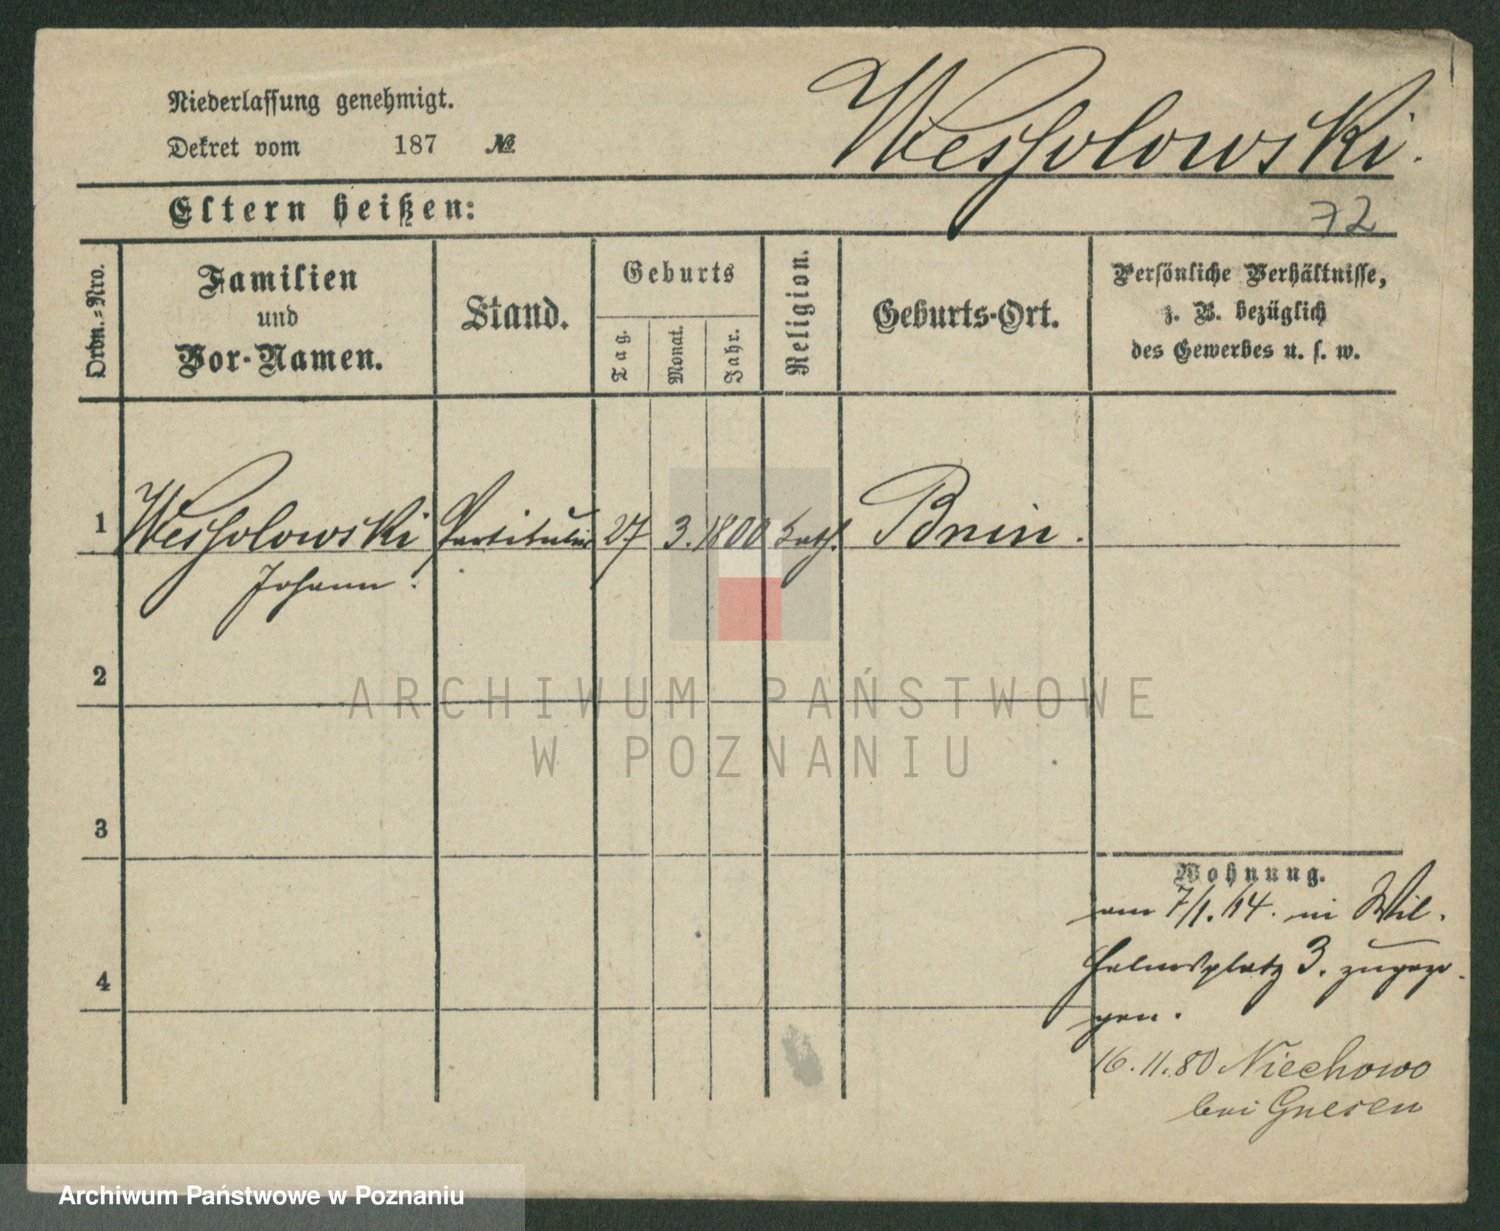 Niederlassung genehmigt.
Dekret vom 187 №
Wessolowski.
Eltern heißen:
72
Ordn.-Nro.
Familien
und
Vor-Namen.
Stand.
Geburts
Tag.
Monat.
Jahr.
Religion.
Geburts-Ort.
Persönliche Verhältnisse,
z. B. bezüglich
des Gewerbes u. s. w.
1 Wessolowski 27 3. 1800 kath. Bnin.
Johann.
2
ARCHIWUM PAŃSTWOWE
W POZNANIU
3
4
Wohnung.
am 7/1. 14. in Wil-
helmsplatz 3. zugezo-
gen.
16.11.80 Niechowo
bei Gnesen
Archiwum Państwowe w Poznaniu